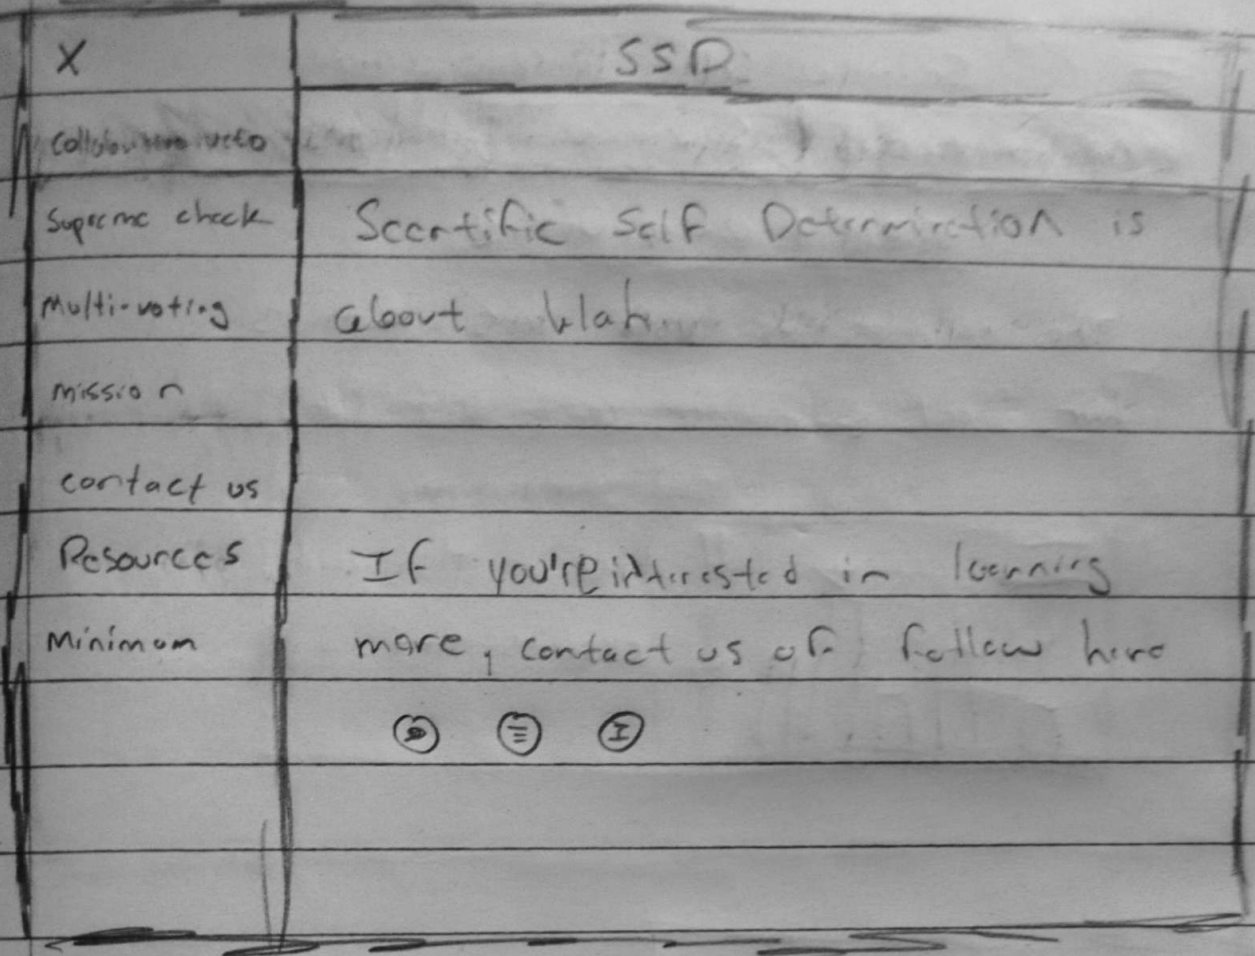 X
SSD
veto
Supreme check
Multi-voting
mission
contact us
Resources
Minimum
Scentific Self Determination is
about blah
If you're interested in learning
more, contact us or follow here
I